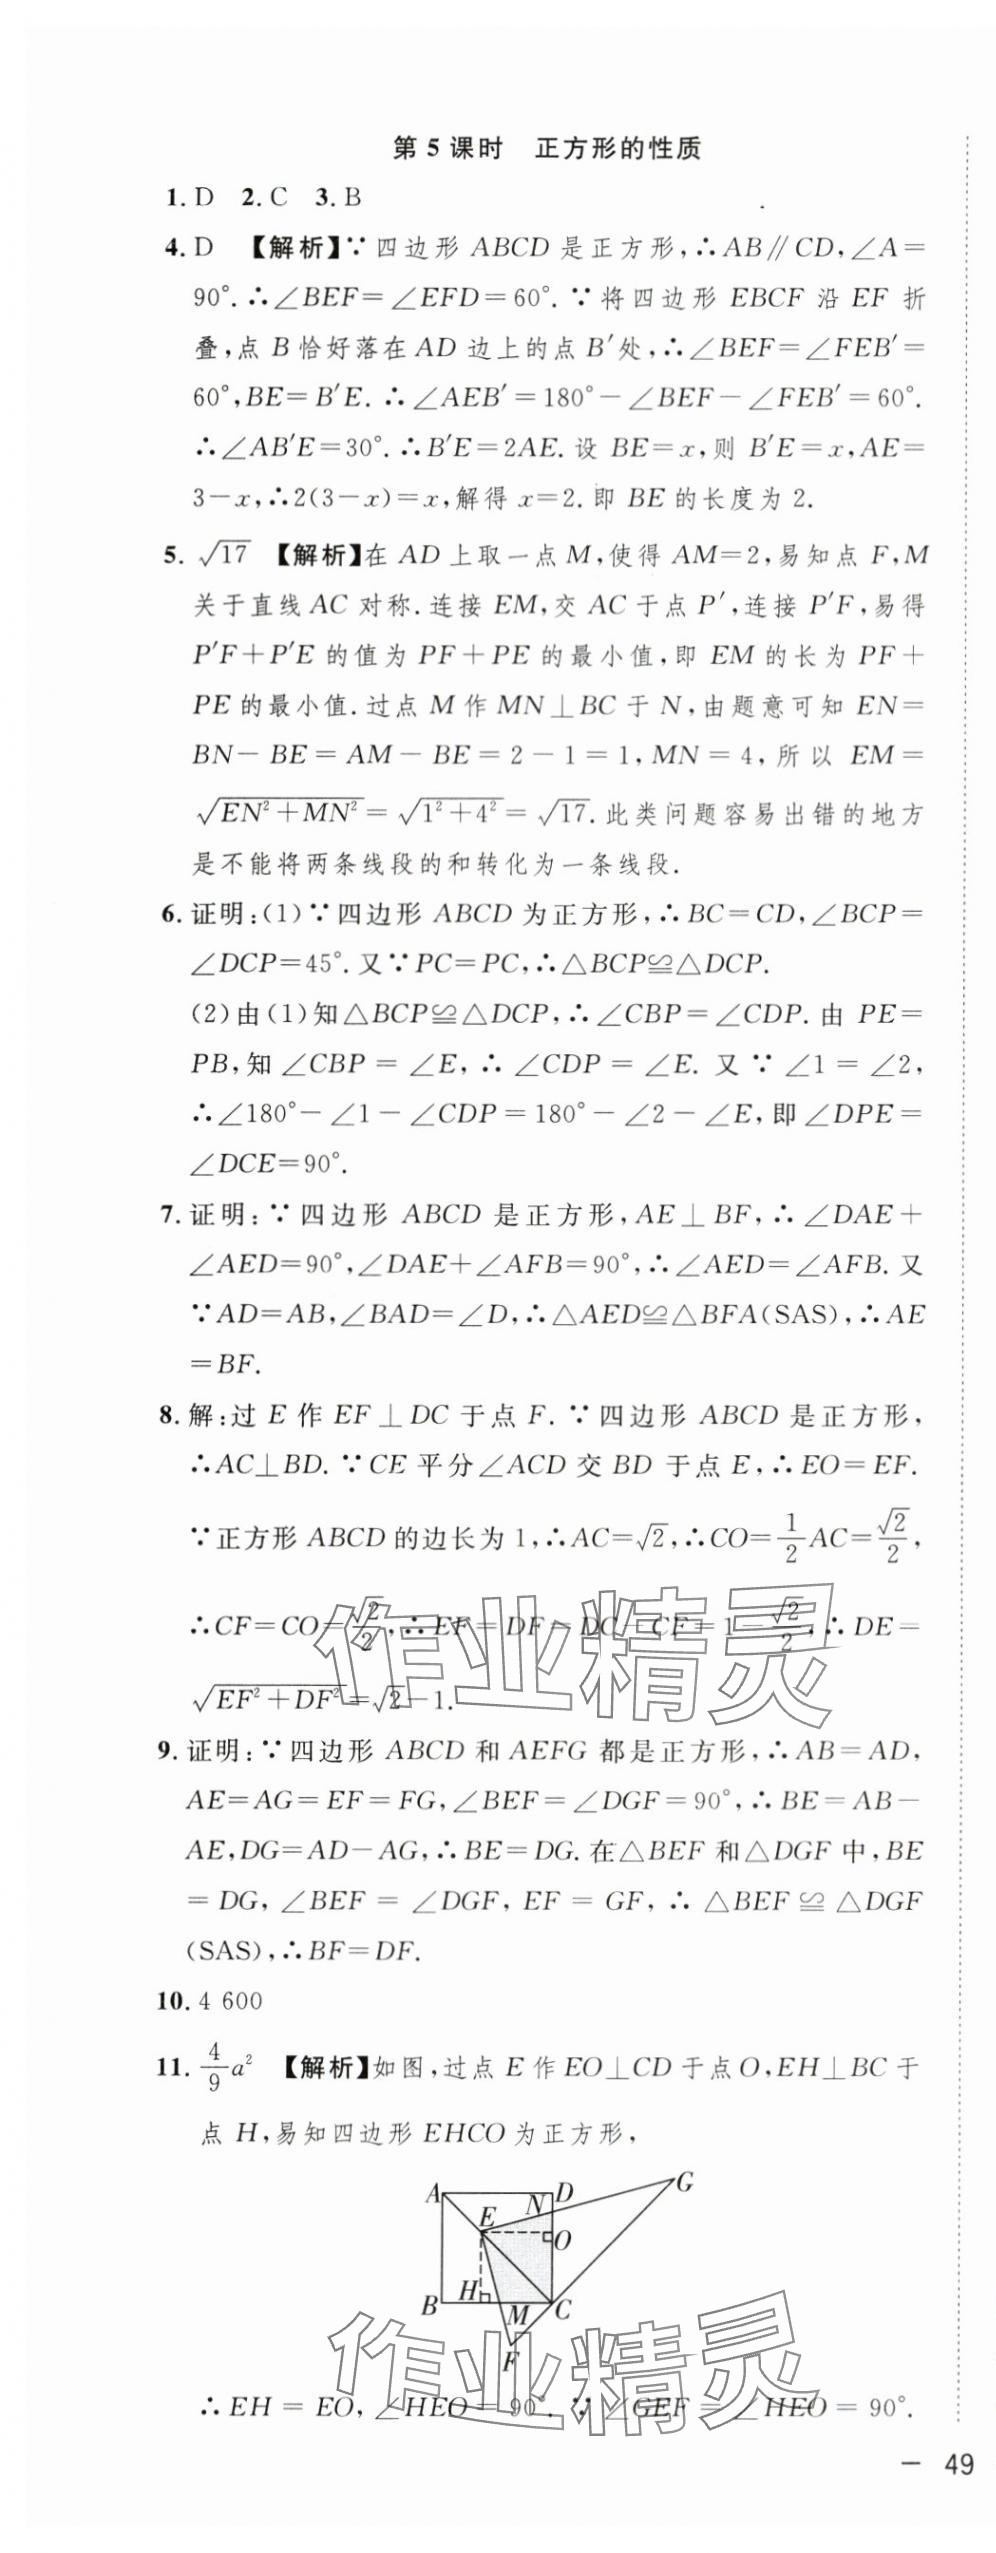 第5课时 正方形的性质
1. D 2. C 3. B
4. D 【解析】∵四边形 ABCD 是正方形,∴AB∥CD,∠A=
90°.∴∠BEF=∠EFD=60°.∵将四边形 EBCF 沿 EF 折
叠,点 B 恰好落在 AD 边上的点 B′处,∴∠BEF=∠FEB′=
60°,BE=B′E.∴∠AEB′=180°-∠BEF-∠FEB′=60°.
∴∠AB′E=30°.∴B′E=2AE.设 BE=x,则 B′E=x,AE=
3-x,∴2(3-x)=x,解得 x=2.即 BE 的长度为 2.
5. √17 【解析】在 AD 上取一点 M,使得 AM=2,易知点 F,M
关于直线 AC 对称.连接 EM,交 AC 于点 P′,连接 P′F,易得
P′F+P′E 的值为 PF+PE 的最小值,即 EM 的长为 PF+
PE 的最小值.过点 M 作 MN⊥BC 于 N,由题意可知 EN=
BN-BE=AM-BE=2-1=1,MN=4,所以 EM=
√(EN²+MN²)=√(1²+4²)=√17.此类问题容易出错的地方
是不能将两条线段的和转化为一条线段.
6. 证明:(1)∵四边形 ABCD 为正方形,∴BC=CD,∠BCP=
∠DCP=45°.又∵PC=PC,∴△BCP≌△DCP.
(2)由(1)知△BCP≌△DCP,∴∠CBP=∠CDP.由 PE=
PB,知∠CBP=∠E,∴∠CDP=∠E.又∵∠1=∠2,
∴∠180°-∠1-∠CDP=180°-∠2-∠E,即∠DPE=
∠DCE=90°.
7. 证明:∵四边形 ABCD 是正方形,AE⊥BF,∴∠DAE+
∠AED=90°,∠DAE+∠AFB=90°,∴∠AED=∠AFB.又
∵AD=AB,∠BAD=∠D,∴△AED≌△BFA(SAS),∴AE
=BF.
8. 解:过 E 作 EF⊥DC 于点 F.∵四边形 ABCD 是正方形,
∴AC⊥BD.∵CE 平分∠ACD 交 BD 于点 E,∴EO=EF.
∵正方形 ABCD 的边长为 1,∴AC=√2,∴CO=1/2 AC=√2/2,
∴CF=CO=√2/2,∴EF=DF=DC-CF=1-√2/2,∴DE=
√(EF²+DF²)=√2-1.
9. 证明:∵四边形 ABCD 和 AEFG 都是正方形,∴AB=AD,
AE=AG=EF=FG,∠BEF=∠DGF=90°,∴BE=AB-
AE,DG=AD-AG,∴BE=DG.在△BEF 和△DGF 中,BE
=DG,∠BEF=∠DGF,EF=GF,∴△BEF≌△DGF
(SAS),∴BF=DF.
10. 4 600
11. 4/9 a² 【解析】如图,过点 E 作 EO⊥CD 于点 O,EH⊥BC 于
点 H,易知四边形 EHCO 为正方形,
A N D G
E O
H
B M C
F
∴EH=EO,∠HEO=90°.∵∠GEF=∠HEO=90°.
— 49
作业精灵
作业精灵